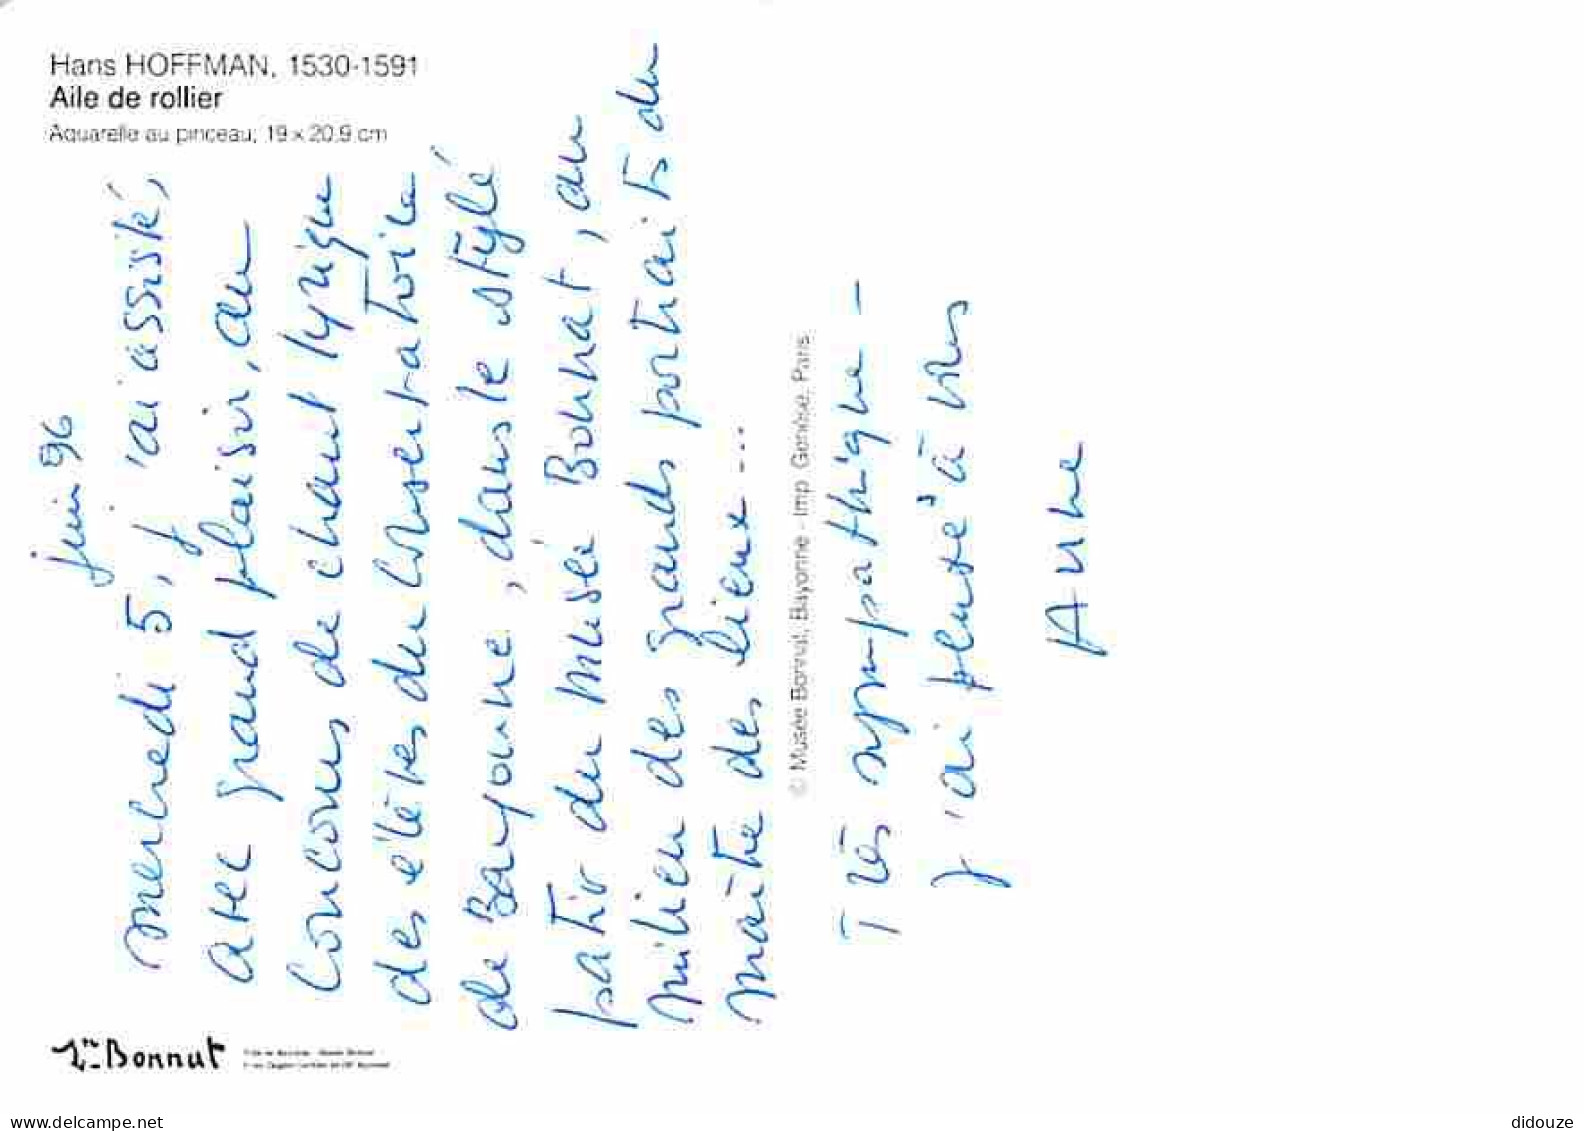 Hans HOFFMAN, 1530-1591
Aile de rollier
Aquarelle au pinceau; 19 x 20,9 cm
Juin 96
Mercredi 5, j'ai assisté,
avec grand plaisir, au
Concours de chant lyrique
des élèves du Conservatoire
de Bayonne, dans le stylé
patio du Musée Bonnat, au
milieu des grands portraits du
maître des lieux...
© Musée Bonnat, Bayonne - Imp. Genèse, Paris
Très sympathique -
J'ai pensé à vous
Anne
Bonnat
www.delcampe.net
didouze